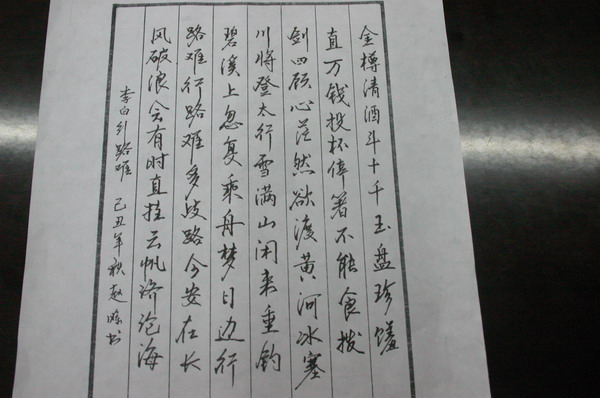 金樽清酒斗十千玉盘珍馐
直万钱投杯停箸不能食拔
剑四顾心茫然欲渡黄河冰塞
川将登太行雪满山闲来垂钓
碧溪上忽复乘舟梦日边行
路难行路难多歧路今安在长
风破浪会有时直挂云帆济沧海
李白行路难 己丑年秋赵 书